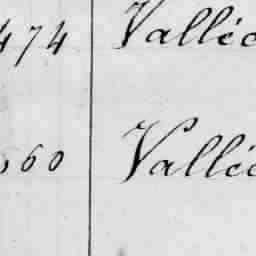 474 Vallée
560 Vallée